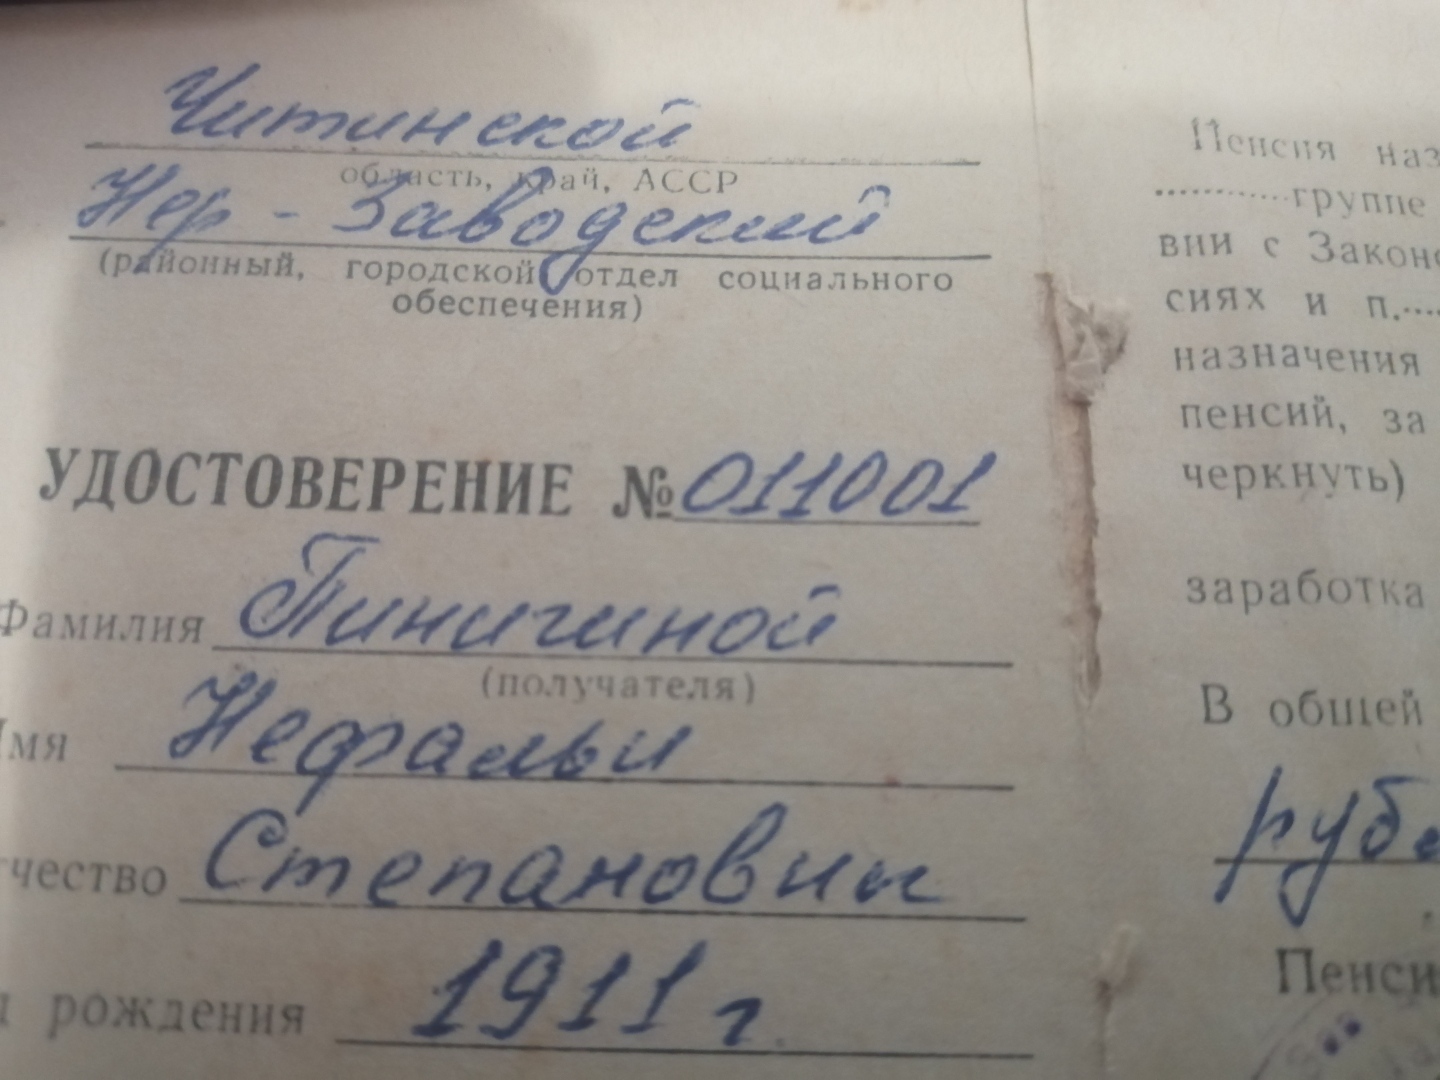 Читинской
область, край, АССР
Нер-Заводский
(районный, городской отдел социального
обеспечения)
УДОСТОВЕРЕНИЕ № 011001
Фамилия Пинигиной
(получателя)
Имя Нефальи
чество Степановны
рождения 1911 г.
Пенсия наз
группе
вии с Законо
сиях и п.
назначения
пенсий, за
черкнуть)
заработка
В общей
руб.
Пенси